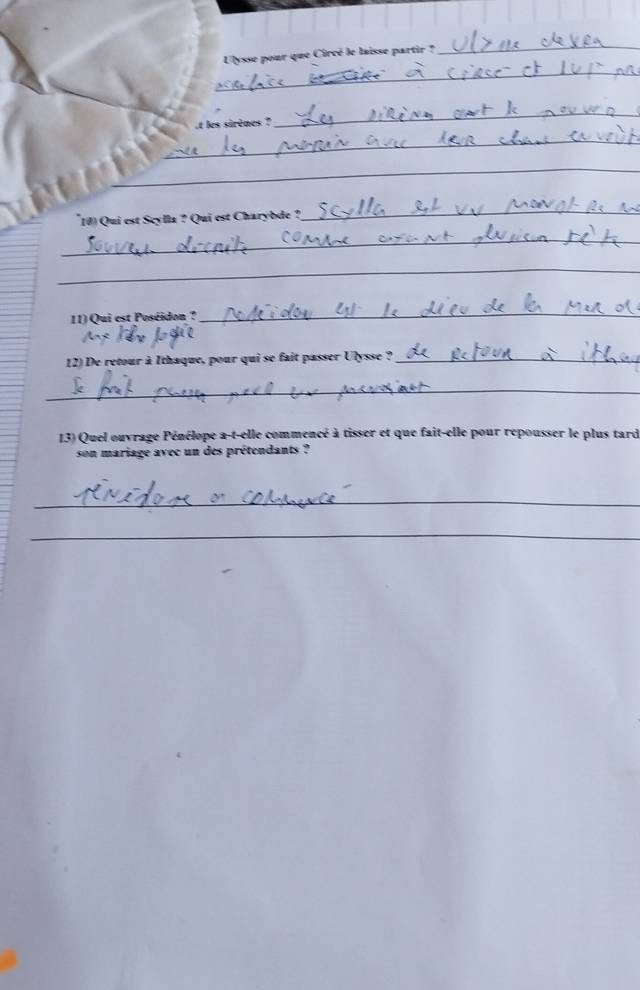 Ulysse pour que Circé le laisse partir ? Ulysse devra
sacrifice à circé et lui
t les sirènes ? Les sirènes ont le pouvoir
les marain avec leur chant envout
10) Qui est Scylla ? Qui est Charybde ? Scylla est un monstre
souvent décrite comme ayant plusieur tête
11) Qui est Poséidon ? Poséidon est le dieu de la mer
12) De retour à Ithaque, pour qui se fait passer Ulysse ? de retour à itha
se fait passer
13) Quel ouvrage Pénélope a-t-elle commencé à tisser et que fait-elle pour repousser le plus tard
son mariage avec un des prétendants ?
commencé